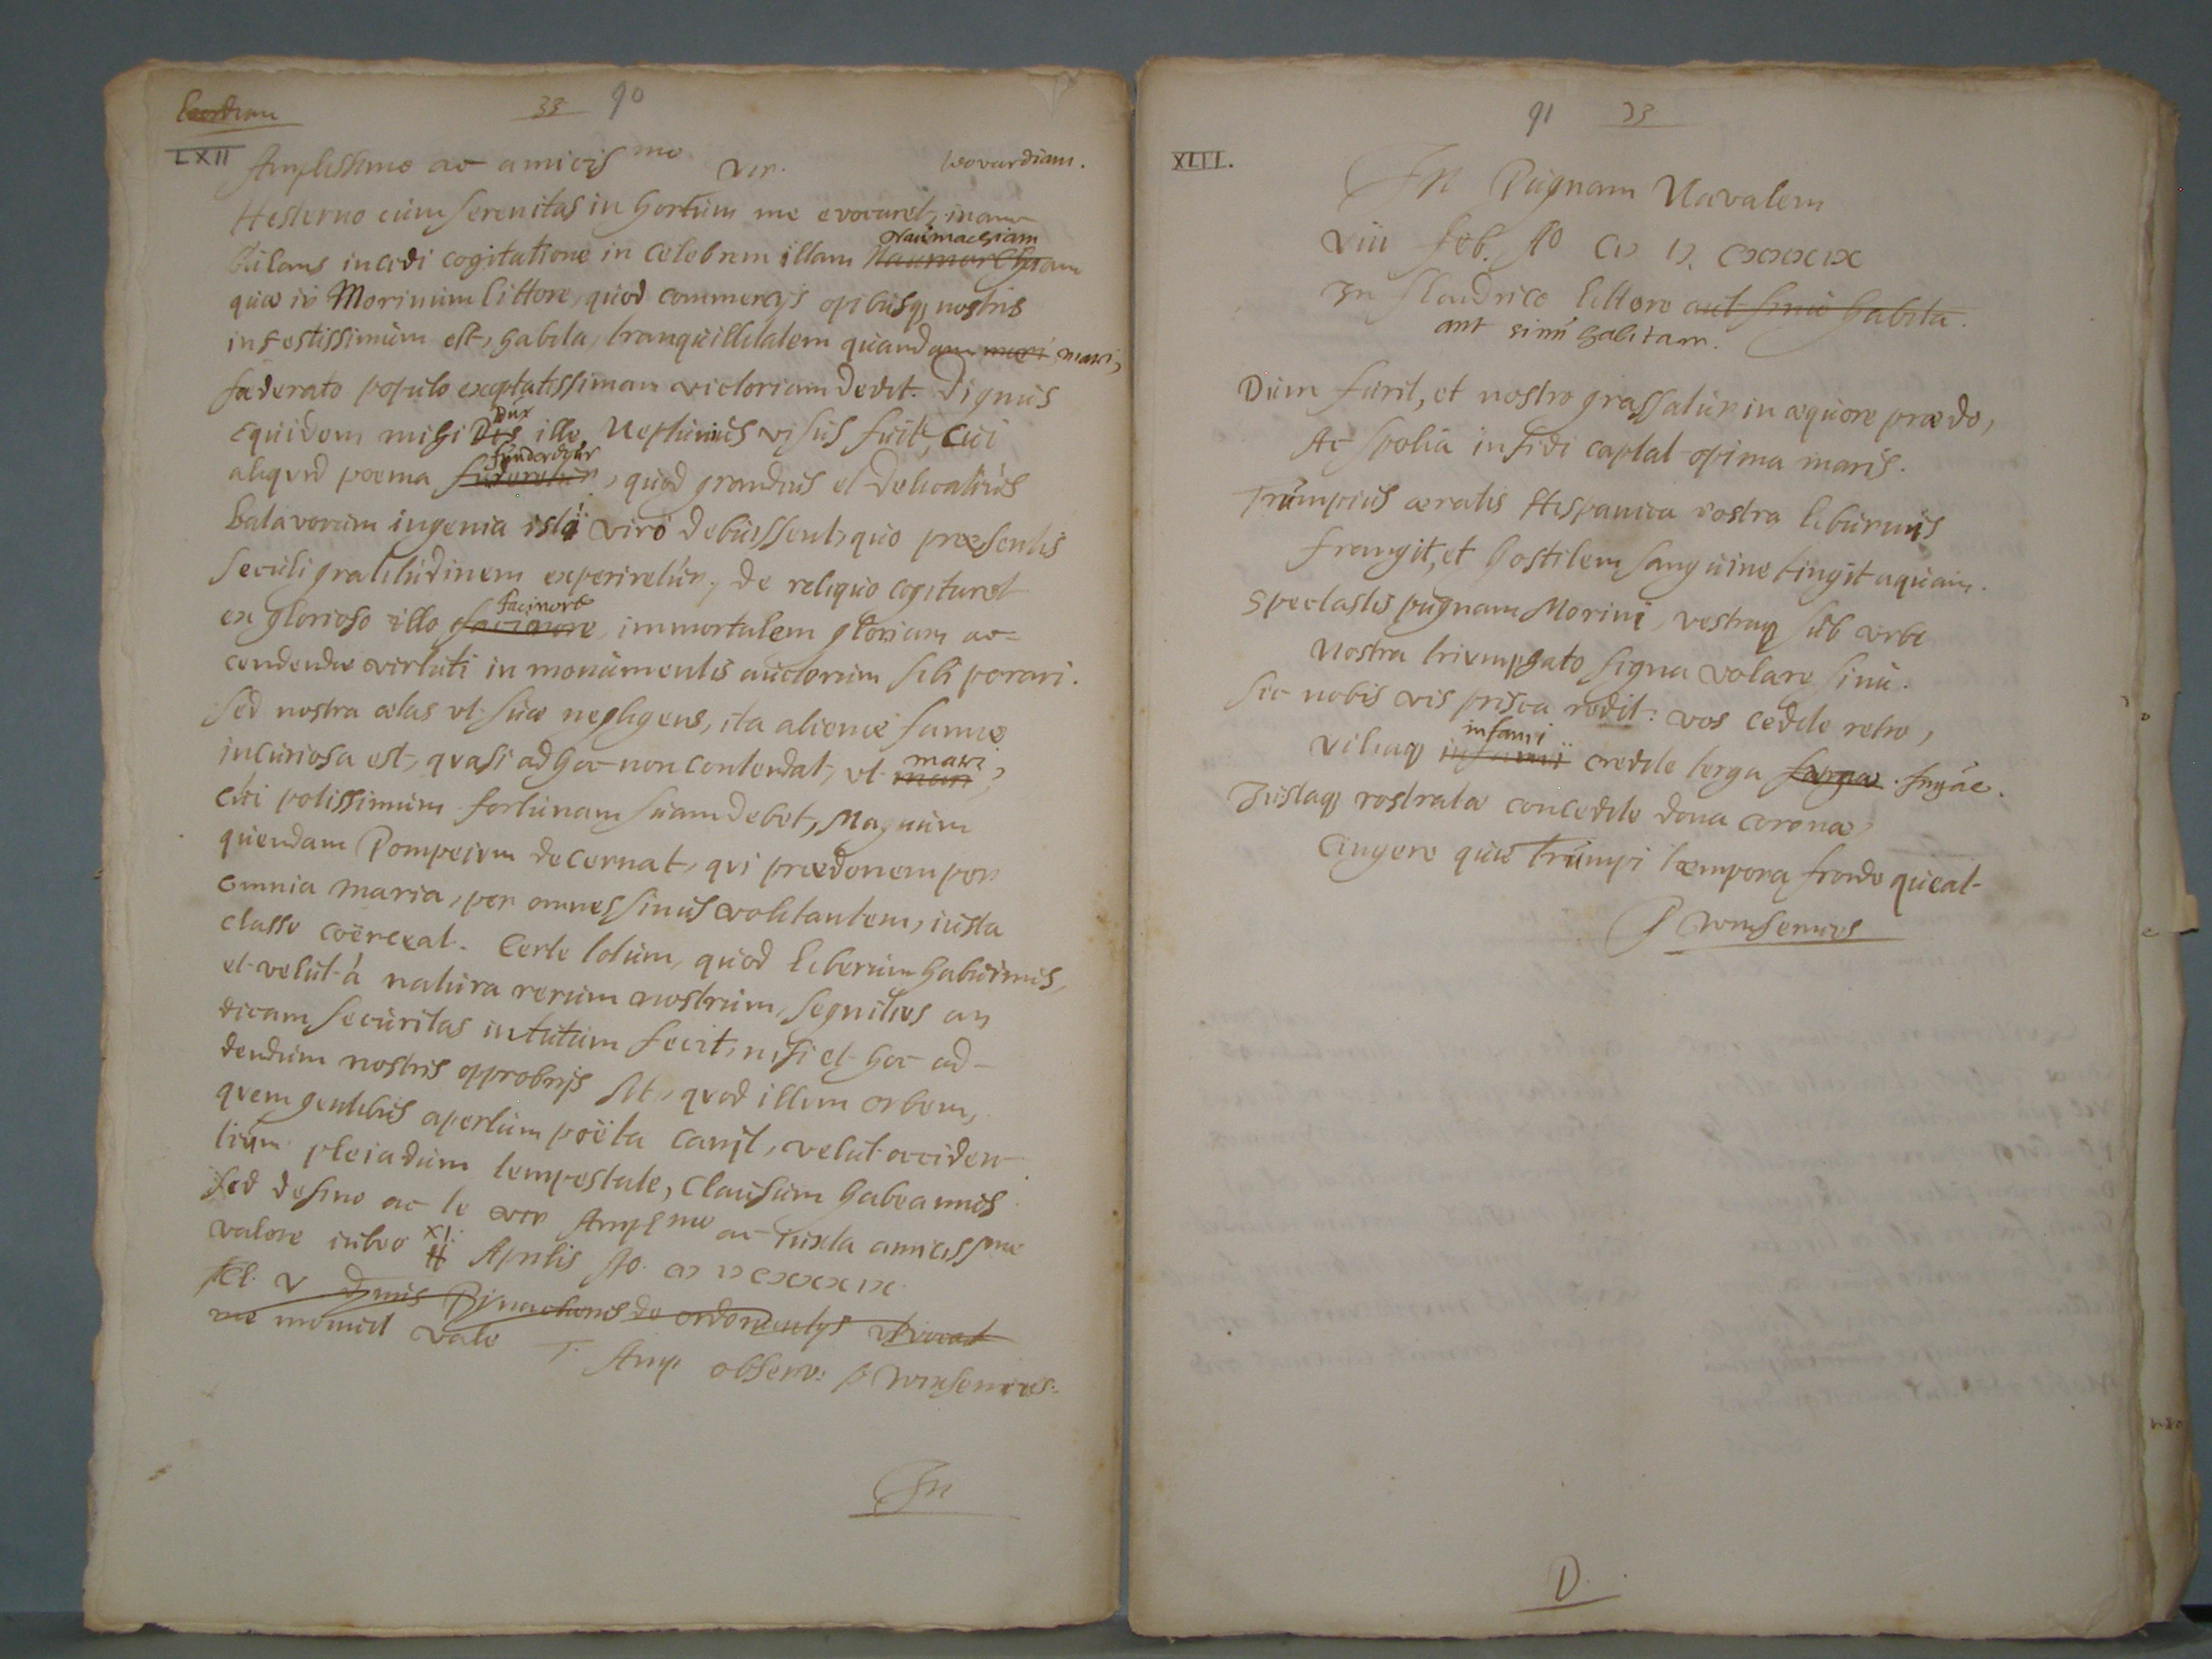 33 90
LXII Amplissime ac amicissme vir. Leovardiam.
Hesterno cum serenitas in hortum me evocaret, inam-
bulans incidi cogitatione in celebrem illam Naumachiam
Naumachiam
quæ in Morinum littore, quod commercijs opibusq nostris
infestissimum est, habita, tranquillitatem quandam mari mari,
fæderato populo exoptatissimam victoriam dedit. Dignus
equidem mihi Dux ille Neptunius visus fuit, cui
aliquid poema funderetur, quod grandius et delicatius
batavorum ingenia isti viro debuissent, quo præsentis
seculi gratitudinem experiretur, de reliquo cogitaret
ex glorioso illo facinore facinore, immortalem gloriam ac-
cendendæ virtuti in monumentis auctorum sibi parari.
Sed nostra ætas ut suæ negligens, ita alienæ famæ
incuriosa est, quasi ad hoc non contendat, ut mari mari,
cui potissimum fortunam suam debet, Magnum
quendam Pompejum decernat, qui prædonem per
omnia maria, per omnes sinus volitantem, iusta
classe coërceat. Certe totum, quod liberum habuimus,
et velut á natura rerum nostrum, segnities an
dicam securitas intutum fecit, nisi et hoc ad-
dendum nostris opprobrijs sit, quod illum orbem,
quem gentibus apertum poëta canit, velut occiden-
tium pleiadum tempestate, clausum habeamus
sed desino ac te vir Amplme ac iuxta amicissme
valere iubeo XI. Aprilis Ao. CIↃ IↃ CXXXIX.
Cl. V Dnus
me monuit vale T. Amp observ: P Winsemius.
In
91 33
XLIII.
In Pugnam Navalem
VIII feb. Ao CIↃ IↃ. CXXXIX
In Flandrico littore aut sinu habita.
aut sinu habitam.
Dum furit, et nostro grassatur in æquore prædo,
Ac spolia infidi captat opima maris.
Trumpius æratis Hispanica rostra liburnis
frangit, et hostilem sanguine tingit aquam.
Spectastis pugnam Morini, vestraq sub urbe
Nostra triumphato signa volare sinu.
Sic nobis vis prisca redit: vos cedite retro,
infami
Viliaq infami credite terga fugæ. fugáe.
Iustaq rostratæ concedite dona coronæ,
Cingere quæ Trumpi tæmpora fronde queat
P Winsemius
D.